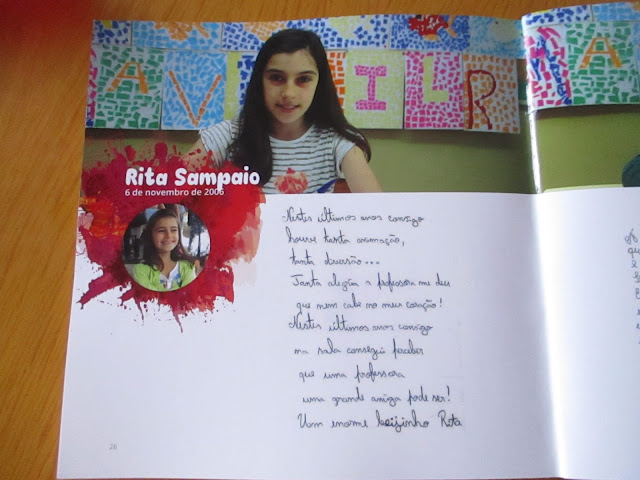 AVEIR
A
Rita Sampaio
6 de novembro de 2006
Nestes últimos anos consigo
houve tanta animação,
tanta diversão...
Tanta alegria a professora me deu
que nem cabe no meu coração!
Nestes últimos anos consigo
na sala consegui perceber
que uma professora
uma grande amiga pode ser!
Um enorme beijinho Rita
26